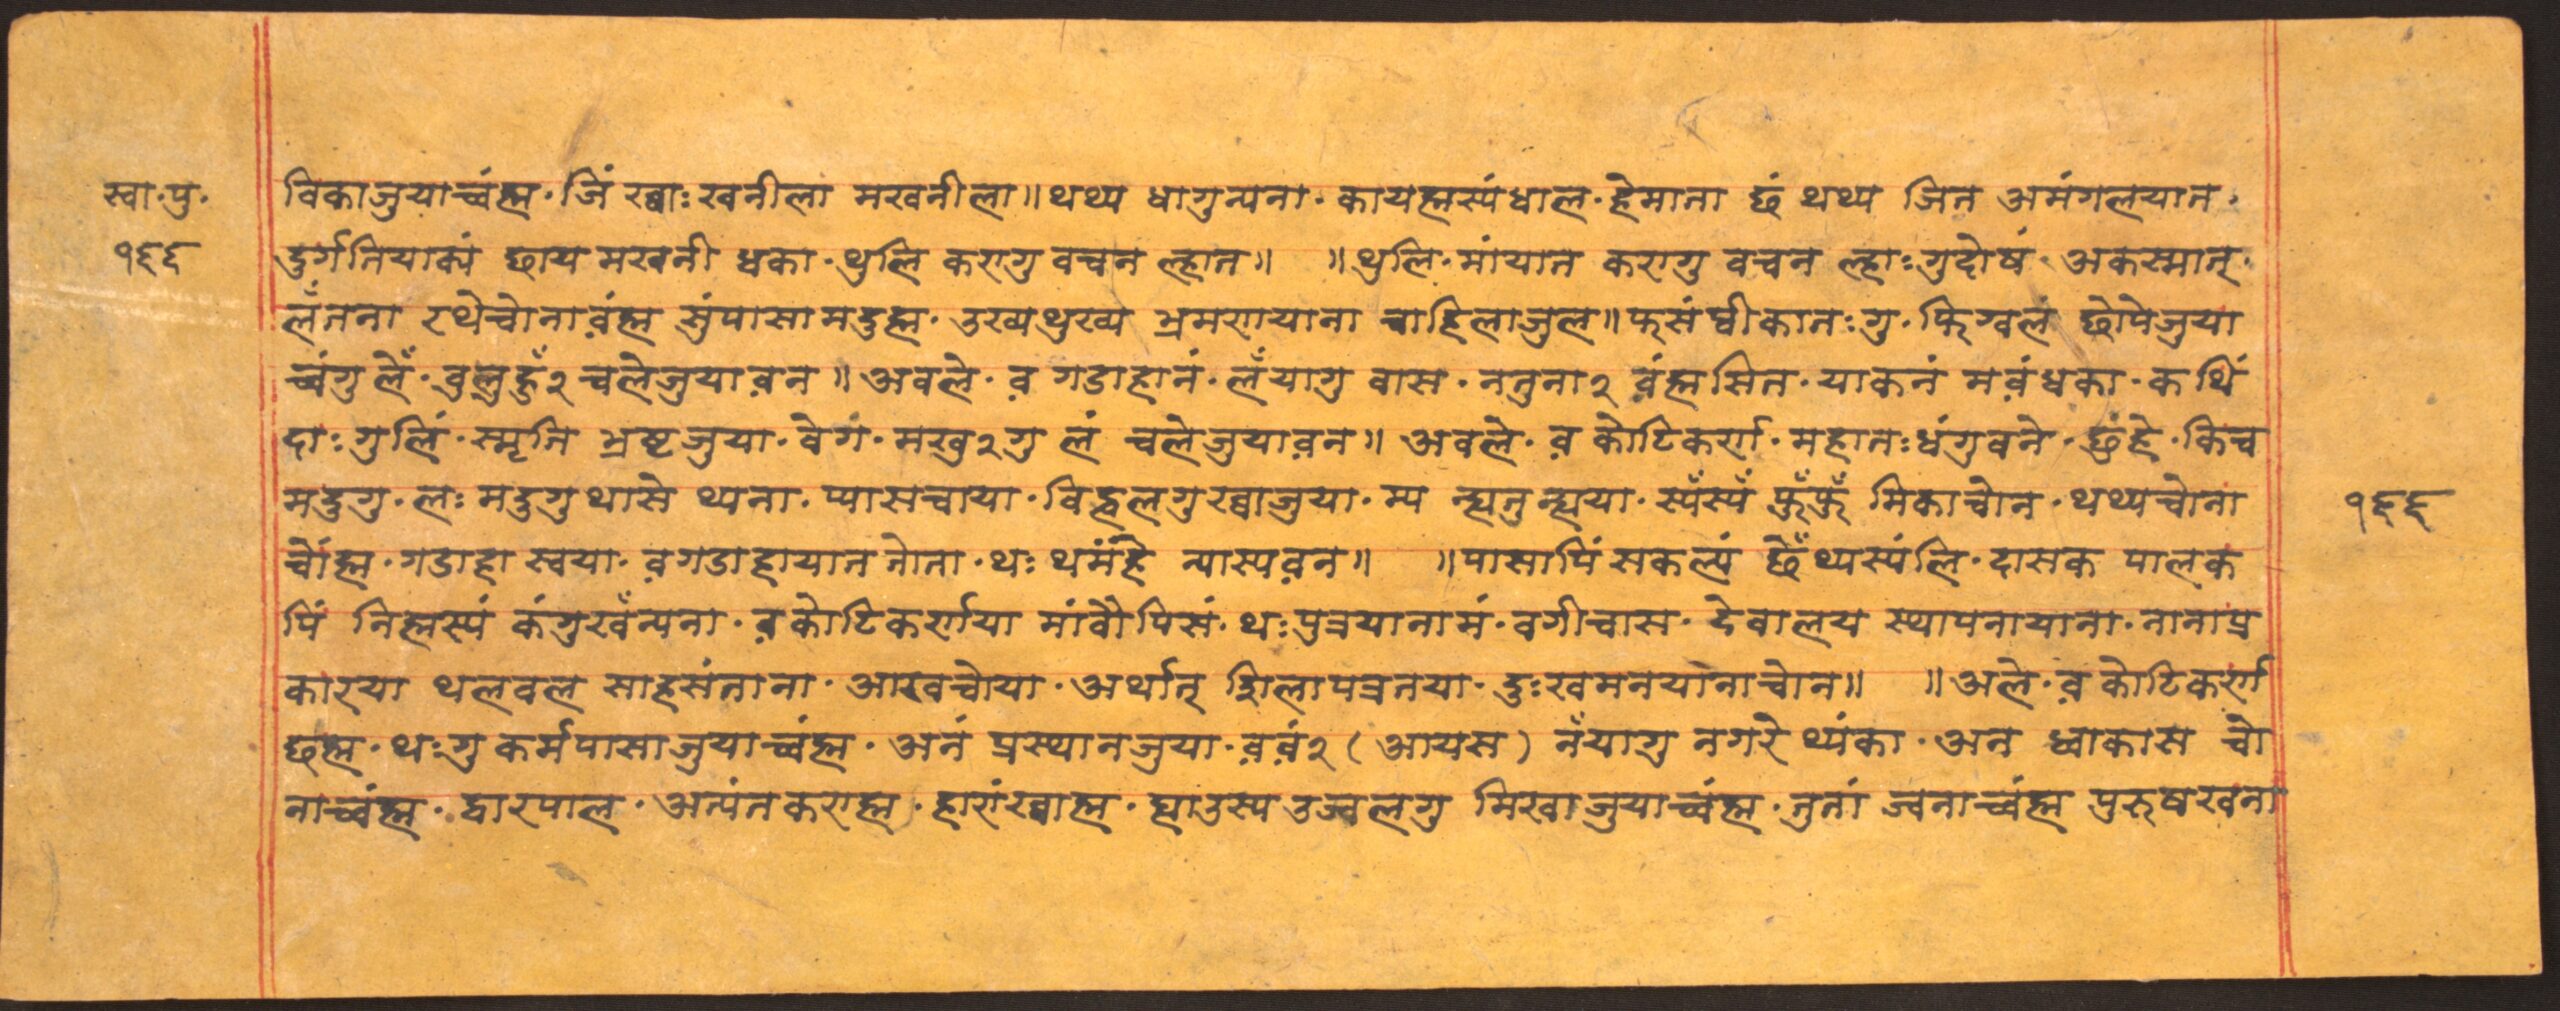 स्वा·पु·
१६६
विकाजुयाच्वंह्म·जिं ख्वाः खनीला मखनीला॥थथ्य धागुन्यना·कायह्मस्यंधाल·हेमाता छं थथ्य जित अमंगलयात·
दुर्गतियाक्यं छाय मखनी धका·थुलि करागु वचन ल्हात॥ ॥थुलि·मांयात करागु वचन ल्हाःगुदोषं·अकस्मात्·
लँतना रथेच्वोनाव़ंह्म सुंपासामदुह्म·उख्यथुख्य भ्रमरायाना चाहिलाजुल॥फसंप्वीकातःगु·फिग्वलं छोपेजुया
च्वंगुलँे·बुलुहुँ२ चलेजुयाव़न॥अवले·व़ गडाहानं·लँयागु बास·नतुना२ व़ंह्मसित·याकनं मव़ंधका·कथिं
दाःगुलिं·स्मृति भ्रष्टजुया·वेगं·मखु२गु लं चलेजुयाव़न॥ अवले·व़ कोटिकर्रा·महातःधंगुवने·छुंहे·किच
मदुगु·लः मदुगुथासे थ्यना·प्यासचाया·विह्वलगुख्वाजुया·म्य न्ह्यतुन्ह्यया·स्यँस्यँ फ्रुँफ्रुँ मिकाच्वोन·थथ्यच्वोना
च्वोंह्म·गडाहा स्वया·व़गडाहायात तोता·थः थमंहे न्यास्यव़न॥ ॥पासापिं सकल्यं छेँथ्यस्यंलि·दासक पालक
पिं निह्मस्यं कंगुखँन्यना·व़कोटिकर्राया मांबौपिसं·थःपुत्रयानामं·बगीचास·देवालय स्थापनायाना·नानाप्र
कारया थलबल साहसंताना·आखच्वोया·अर्थात् शिलापत्रतया·दुःखमनयानाच्वोन॥ ॥अले·व़ कोटिकर्रा
छह्म·थःगु कर्मपासाजुयाच्वंह्म·अनं प्रस्थानजुया·व़व़ं२ (आयस) नँयागु नगरे थ्यंका·अन ध्वाकास च्वो
नाच्वंह्म·द्वारपाल·अत्यंतकराह्म·हाराुंख्वाह्म·ह्याउस्य उज्वलगु मिखाजुयाच्वंह्म·तुतां ज्वनाच्वंह्म पुरुषखना
१६६